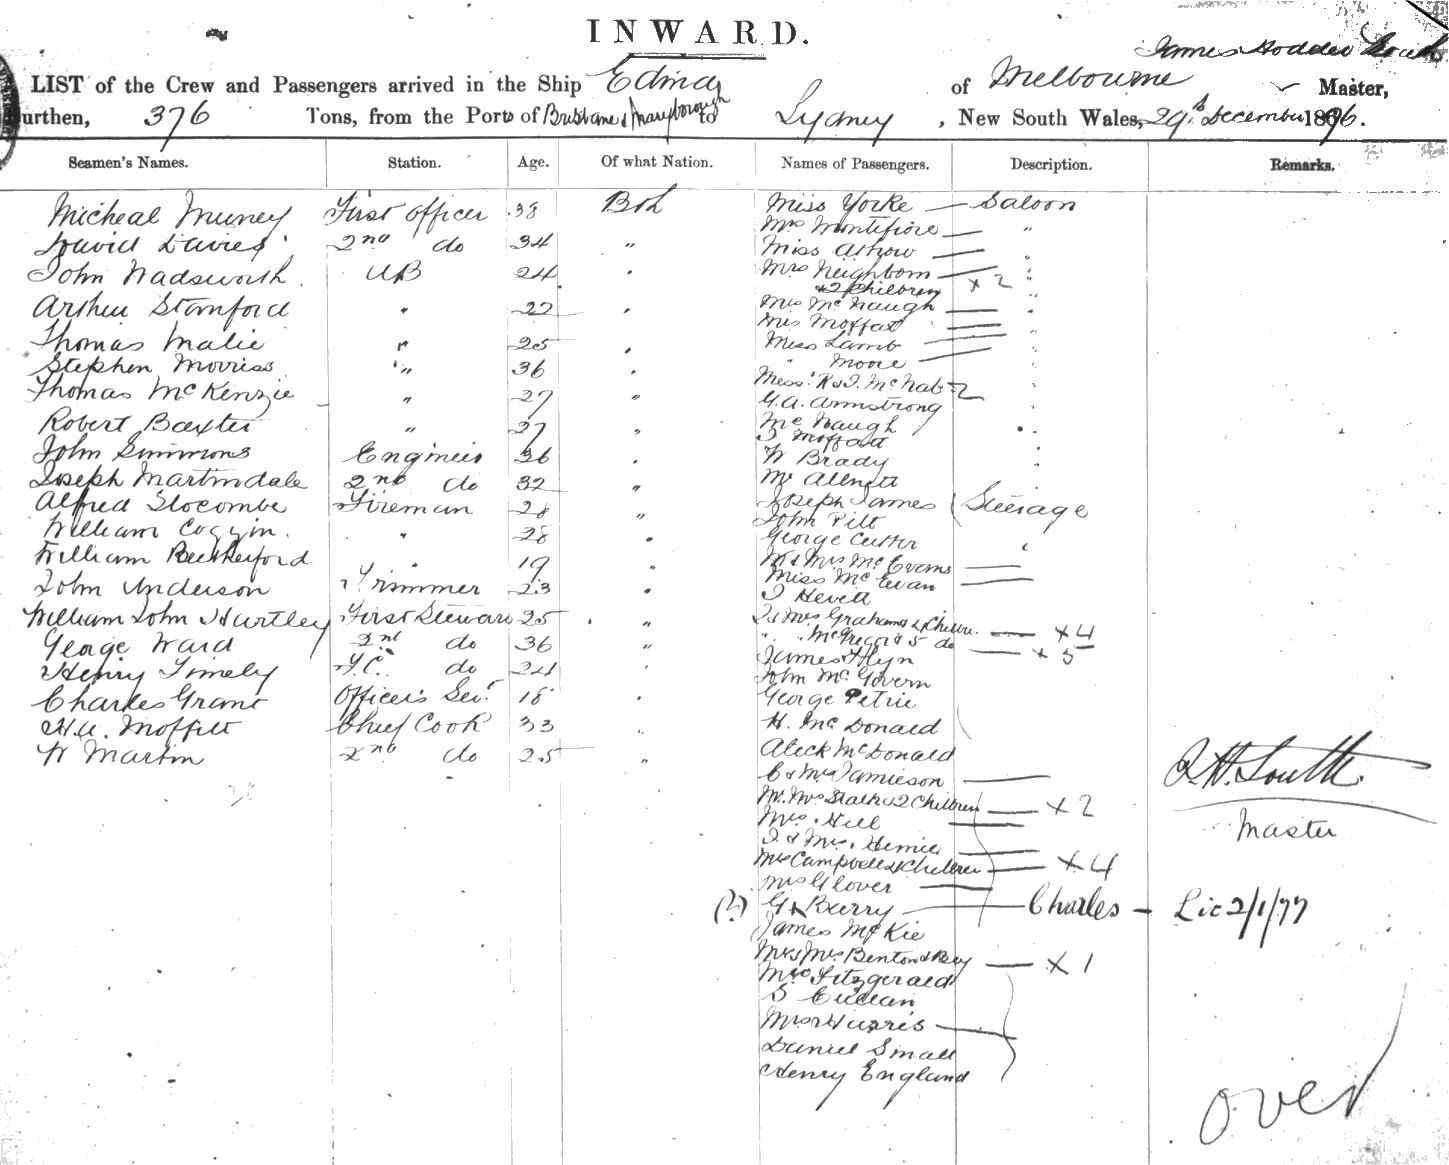 INWARD.
James Hodder South
LIST of the Crew and Passengers arrived in the Ship Edina of Melbourne Master,
urthen, 376 Tons, from the Ports of Brisbane & Maryborough to Sydney, New South Wales, 29th December 1876.
Seamen's Names. Station. Age. Of what Nation. Names of Passengers. Description. Remarks.
Micheal Muney First Officer 38 Brh
David Davies 2nd do 34 "
John Wadsworth AB 24 "
Arthur Stamford " 22 "
Thomas Malie " 25 "
Stephen Morriss " 36 "
Thomas McKenzie " 27 "
Robert Baxter " 27 "
John Simmons Engineer 36 "
Joseph Martindale 2nd do 32 "
Alfred Slocombe Fireman 28 "
William Coggin " 28 "
William Rutherford 19 "
John Anderson Trimmer 23 "
William John Hartley First Steward 25 "
George Ward 2nd do 36 "
Henry Timely F.C. do 24
Charles Grant Officer's Sevt 18 "
H.W. Moffitt Chief Cook 33 "
W Martin 2nd do 25 "
Miss Yorke — Saloon
Mrs Montifiore — "
Miss Arhow — "
Mrs Neighbom — "
& 2 Children x 2 "
Mrs McNaugh — "
Mrs Moffat — "
Miss Lamb — "
" Moore — "
Messrs R & J. McNab = 2 "
G.A. Armstrong
McNaugh "
J Moffatt
W Brady "
Mr Allnutt
Joseph James Steerage
John Pilt
George Cutter "
Mr & Mrs McEvans —
Miss McEwan —
J Hevitt
J & Mrs Graham & 4 Childre — x 4
" " McGregor & 5 do — x 5
James Flyn
John McGovern
George Petrie
H. McDonald
Aleck McDonald
C & Mrs Jamieson —
Mr. Mrs Stalk & 2 Children — x 2
Mrs. Hill —
J & Mrs. Hemie —
Mrs Campbell & 4 Children — x 4
Mrs Glover —
(?) G Barry — Charles — Lic 2/1/77
James McKie
Mr & Mrs Benton & Boy — x 1
Mrs Fitzgerald
S Cullan
Mrs Harris —
Daniel Small
Henry England
J.H. South
Master
over